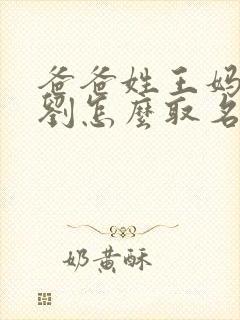 爸爸姓王妈
劉怎麼取名
奶黄酥